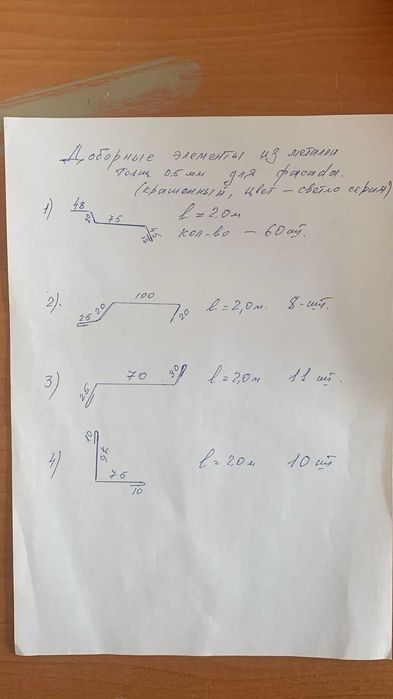 Доборные элементы из металла
толщ 0.5 мм для фасада.
(крашенный, цвет – светло серая)
1) 48 20 75 15 l = 2.0 м
кол-во – 60 шт.
2). 25 20 100 20 l = 2,0 м. 8 - шт.
3) 25 70 30 l = 2,0 м 11 шт.
4) 10 75 75 10 l = 2.0 м 10 шт